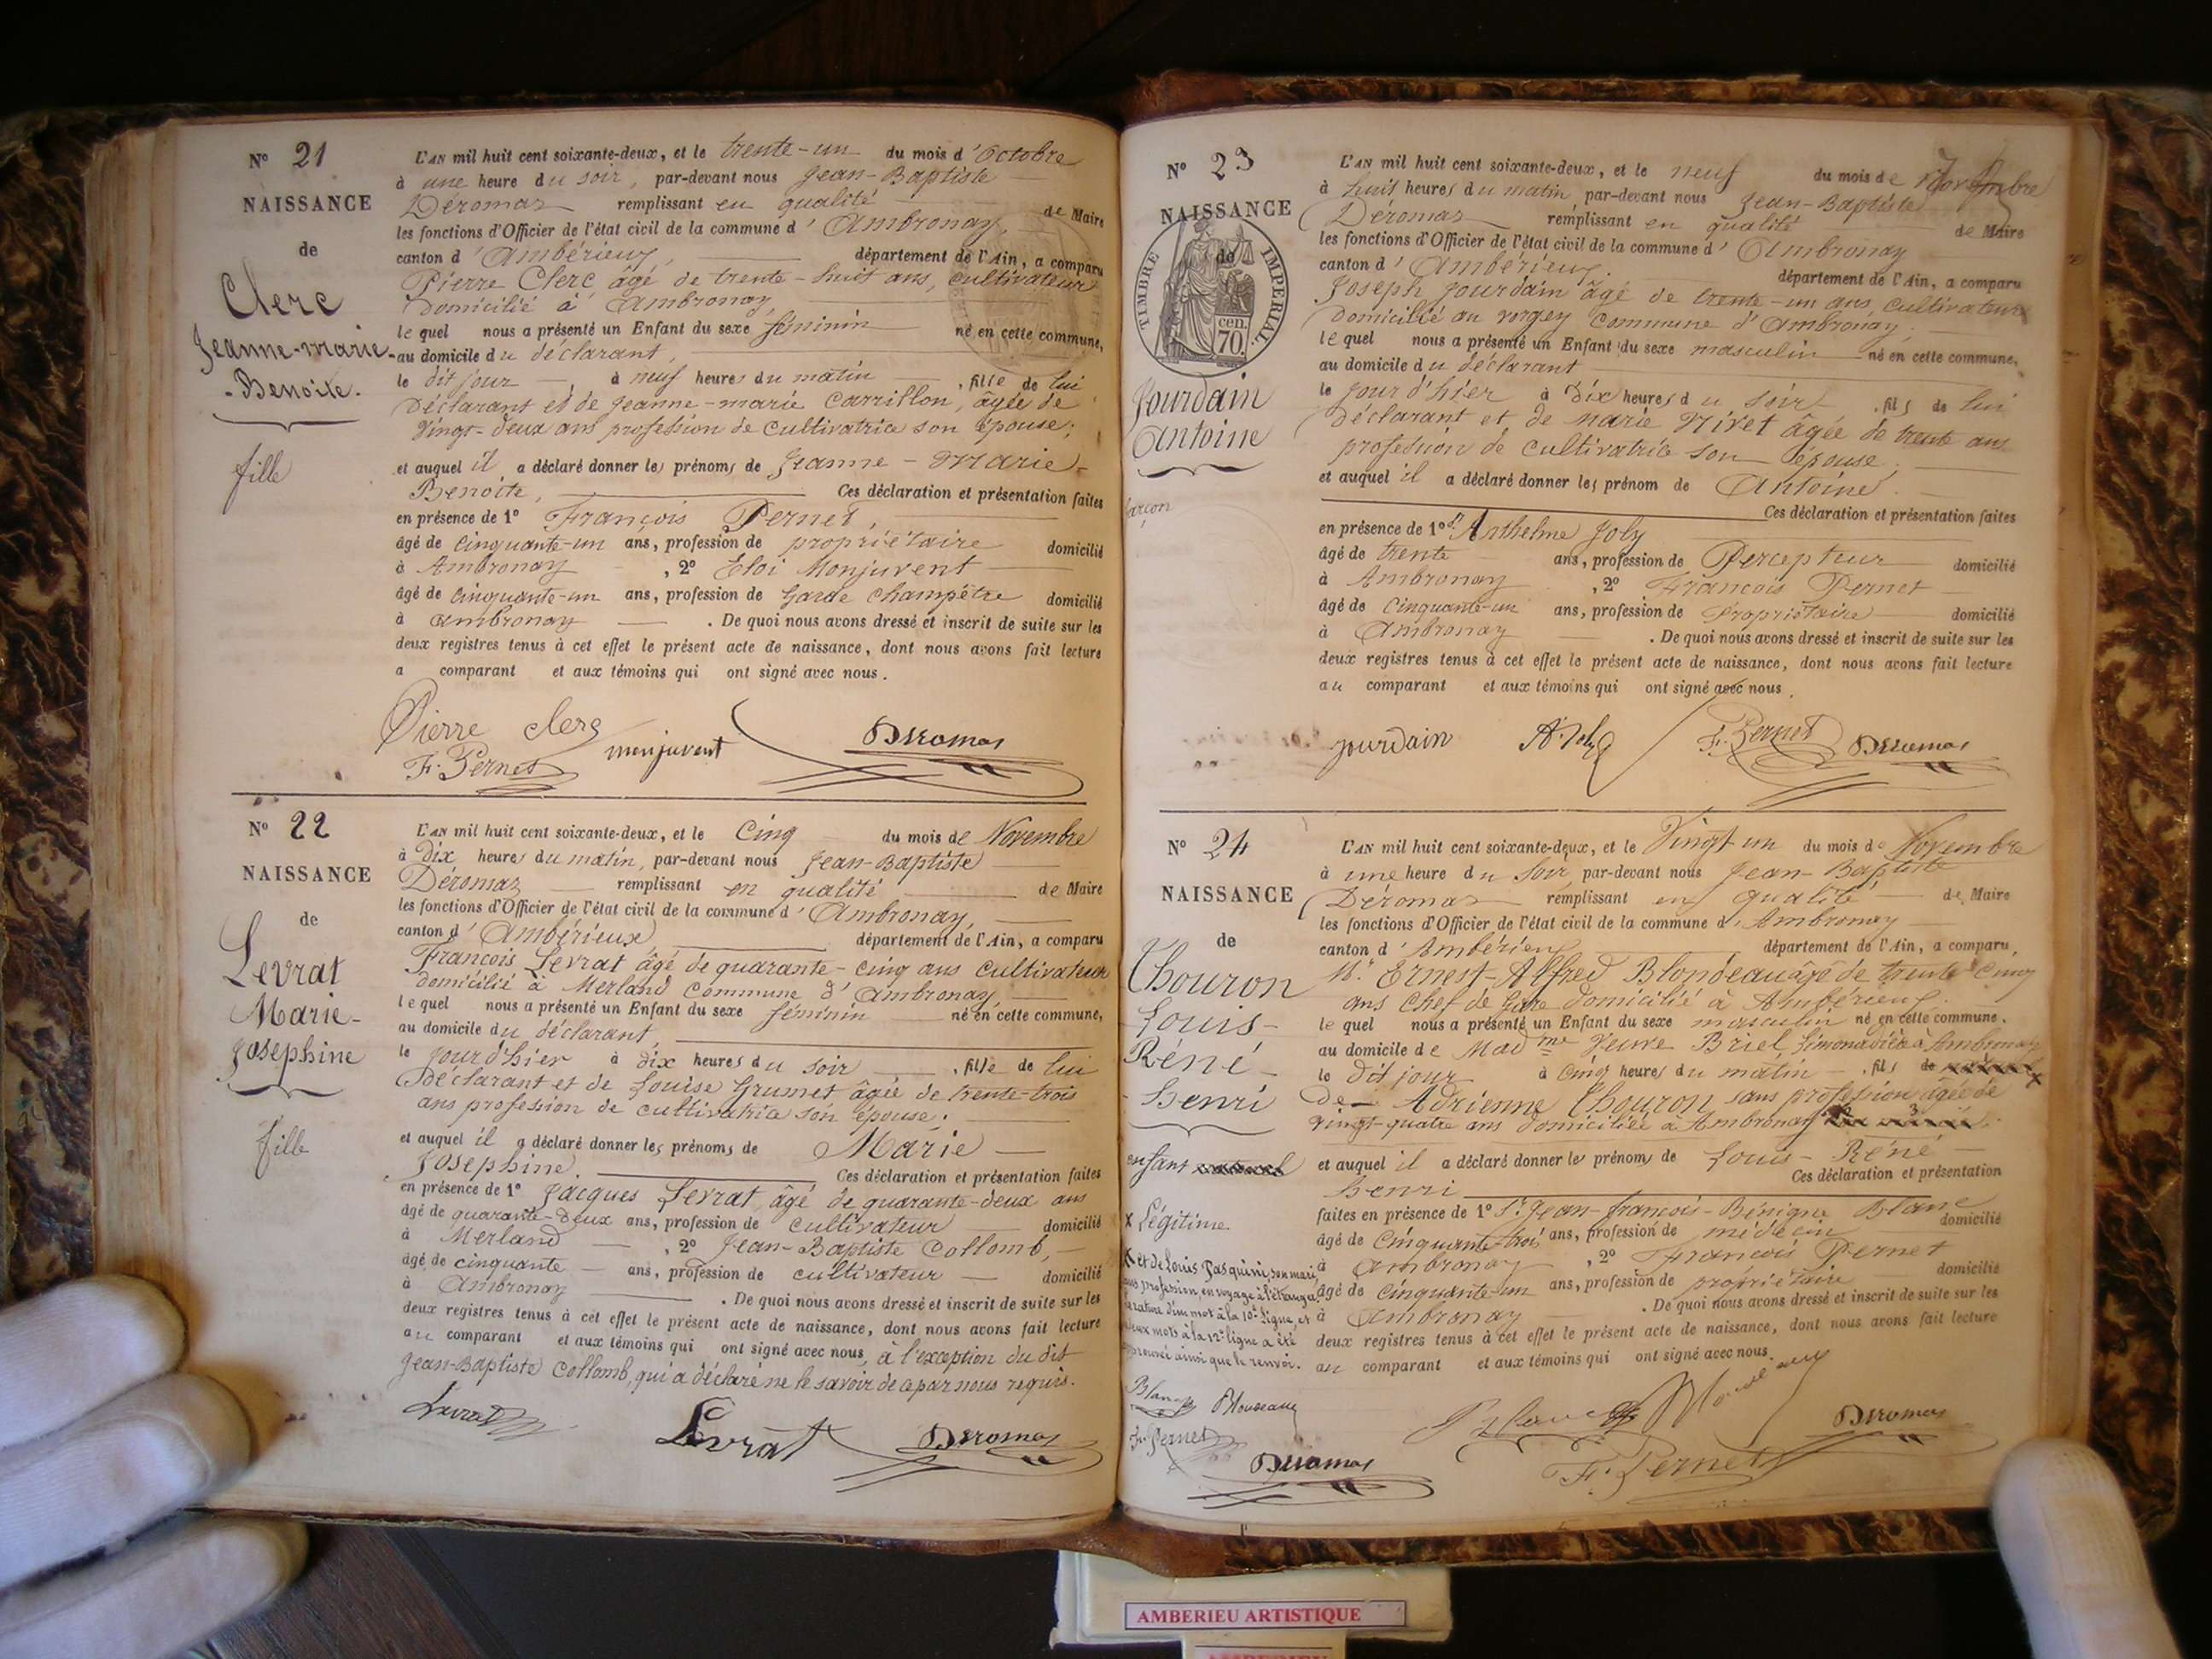 N° 21
NAISSANCE
de
Clerc
Jeanne-marie-
-Benoite.
fille
L'AN mil huit cent soixante-deux, et le trente-un du mois d'Octobre
à une heure du soir, par-devant nous Jean-Baptiste
Déromas remplissant en qualité de Maire
les fonctions d'Officier de l'état civil de la commune d'Ambronay,
canton d'Ambérieux, département de l'Ain, a comparu
Pierre Clerc âgé de trente-huit ans, cultivateur
domicilié à Ambronay,
le quel nous a présenté un Enfant du sexe féminin né en cette commune,
au domicile du déclarant,
le dit jour, à neuf heures du matin, fille de lui
Déclarant et de Jeanne-marie Carrillon, âgée de
Vingt-deux ans profession de Cultivatrice son épouse;
et auquel il a déclaré donner les prénoms de Jeanne-Marie-
Benoite, Ces déclaration et présentation faites
en présence de 1° François Pernet,
âgé de Cinquante-un ans, profession de propriétaire domicilié
à Ambronay, 2° Eloi Monjuvent
âgé de Cinquante-un ans, profession de Garde Champêtre domicilié
à ambronay. De quoi nous avons dressé et inscrit de suite sur les
deux registres tenus à cet effet le présent acte de naissance, dont nous avons fait lecture
a comparant et aux témoins qui ont signé avec nous.
Pierre clerc
F. Pernet monjuvent Deromas
N° 22
NAISSANCE
de
Levrat
Marie-
Josephine
fille
L'AN mil huit cent soixante-deux, et le Cinq du mois de Novembre
à Dix heures du matin, par-devant nous Jean-Baptiste
Déromas remplissant en qualité de Maire
les fonctions d'Officier de l'état civil de la commune d'Ambronay,
canton d'Ambérieux département de l'Ain, a comparu
François Levrat âgé de quarante-cinq ans Cultivateur
domicilié à Merland Commune d'Ambronay,
le quel nous a présenté un Enfant du sexe féminin né en cette commune,
au domicile du déclarant,
le jour d'hier à Dix heures du soir, fille de lui
Déclarant et de Louise Grumet âgée de trente-trois
ans profession de cultivatrice son épouse;
et auquel il a déclaré donner les prénoms de Marie
Josephine. Ces déclaration et présentation faites
en présence de 1° Jacques Levrat, âgé de quarante-deux ans
âgé de quarante-deux ans, profession de Cultivateur domicilié
à Merland, 2° Jean-Baptiste Collomb,
âgé de cinquante ans, profession de cultivateur domicilié
à Ambronay. De quoi nous avons dressé et inscrit de suite sur les
deux registres tenus à cet effet le présent acte de naissance, dont nous avons fait lecture
au comparant et aux témoins qui ont signé avec nous, à l'exception du dit
Jean-Baptiste Collomb, qui a déclaré ne le savoir de ce par nous requis.
Levrat Levrat Deromas
N° 23
NAISSANCE
de
TIMBRE IMPERIAL.
70 cen.
Jourdain
Antoine
Garçon
L'AN mil huit cent soixante-deux, et le neuf du mois de Novembre
à huit heures du matin, par-devant nous Jean-Baptiste
Déromas remplissant en qualité de Maire
les fonctions d'Officier de l'état civil de la commune d'Ambronay
canton d'Ambérieux. département de l'Ain, a comparu
Joseph Jourdain âgé de trente-un ans, cultivateur
domicilié au vorgey Commune d'Ambronay,
le quel nous a présenté un Enfant du sexe masculin né en cette commune,
au domicile du déclarant
le jour d'hier à Dix heures du soir, fils de lui
Déclarant et de marie Nivet âgée de trente ans
profession de cultivatrice son épouse,
et auquel il a déclaré donner les prénom de Antoine.
Ces déclaration et présentation faites
en présence de 1° Sr. Anthelme Joly
âgé de trente ans, profession de Percepteur domicilié
à Ambronay, 2° François Pernet
âgé de Cinquante-un ans, profession de Propriétaire domicilié
à Ambronay. De quoi nous avons dressé et inscrit de suite sur les
deux registres tenus à cet effet le présent acte de naissance, dont nous avons fait lecture
au comparant et aux témoins qui ont signé avec nous.
Jourdain A. Joly F. Pernet Deromas
N° 24
NAISSANCE
de
Thouron
Louis-
Réné-
Henri
enfant
x Légitime.
x et de Louis Pasquini, son mari,
sans profession, en voyage à l'étranger.
la rature d'un mot à la 10e ligne, et
deux mots à la 12e ligne a été
approuvée ainsi que le renvoi.
Blanc Blondeau
F. Pernet
Deromas
L'AN mil huit cent soixante-deux, et le Vingt un du mois de Novembre
à une heure du Soir, par-devant nous Jean-Baptiste
Déromas remplissant en qualité de Maire
les fonctions d'Officier de l'état civil de la commune d'Ambronay
canton d'Ambérieux département de l'Ain, a comparu,
Mr. Ernest-Alfred Blondeau âgé de trente cinq
ans Chef de Gare domicilié à Ambérieux.
le quel nous a présenté un Enfant du sexe masculin né en cette commune.
au domicile de Madme Veuve Briel, limonadière à Ambronay
le Dit jour à Cinq heures du matin, fils de
De Adrienne Thouron sans profession âgée de
vingt-quatre ans domiciliée à Ambronay
et auquel il a déclaré donner les prénoms de Louis-Réné
henri Ces déclaration et présentation
faites en présence de 1° Sr. Jean-françois-Bénigne Blanc
âgé de Cinquante-trois ans, profession de médecin domicilié
à Ambronay, 2° François Pernet
âgé de Cinquante-un ans, profession de propriétaire domicilié
à Ambronay. De quoi nous avons dressé et inscrit de suite sur les
deux registres tenus à cet effet le présent acte de naissance, dont nous avons fait lecture
au comparant et aux témoins qui ont signé avec nous.
Blanc Blondeau Deromas
F. Pernet
AMBERIEU ARTISTIQUE
AMBERIEU